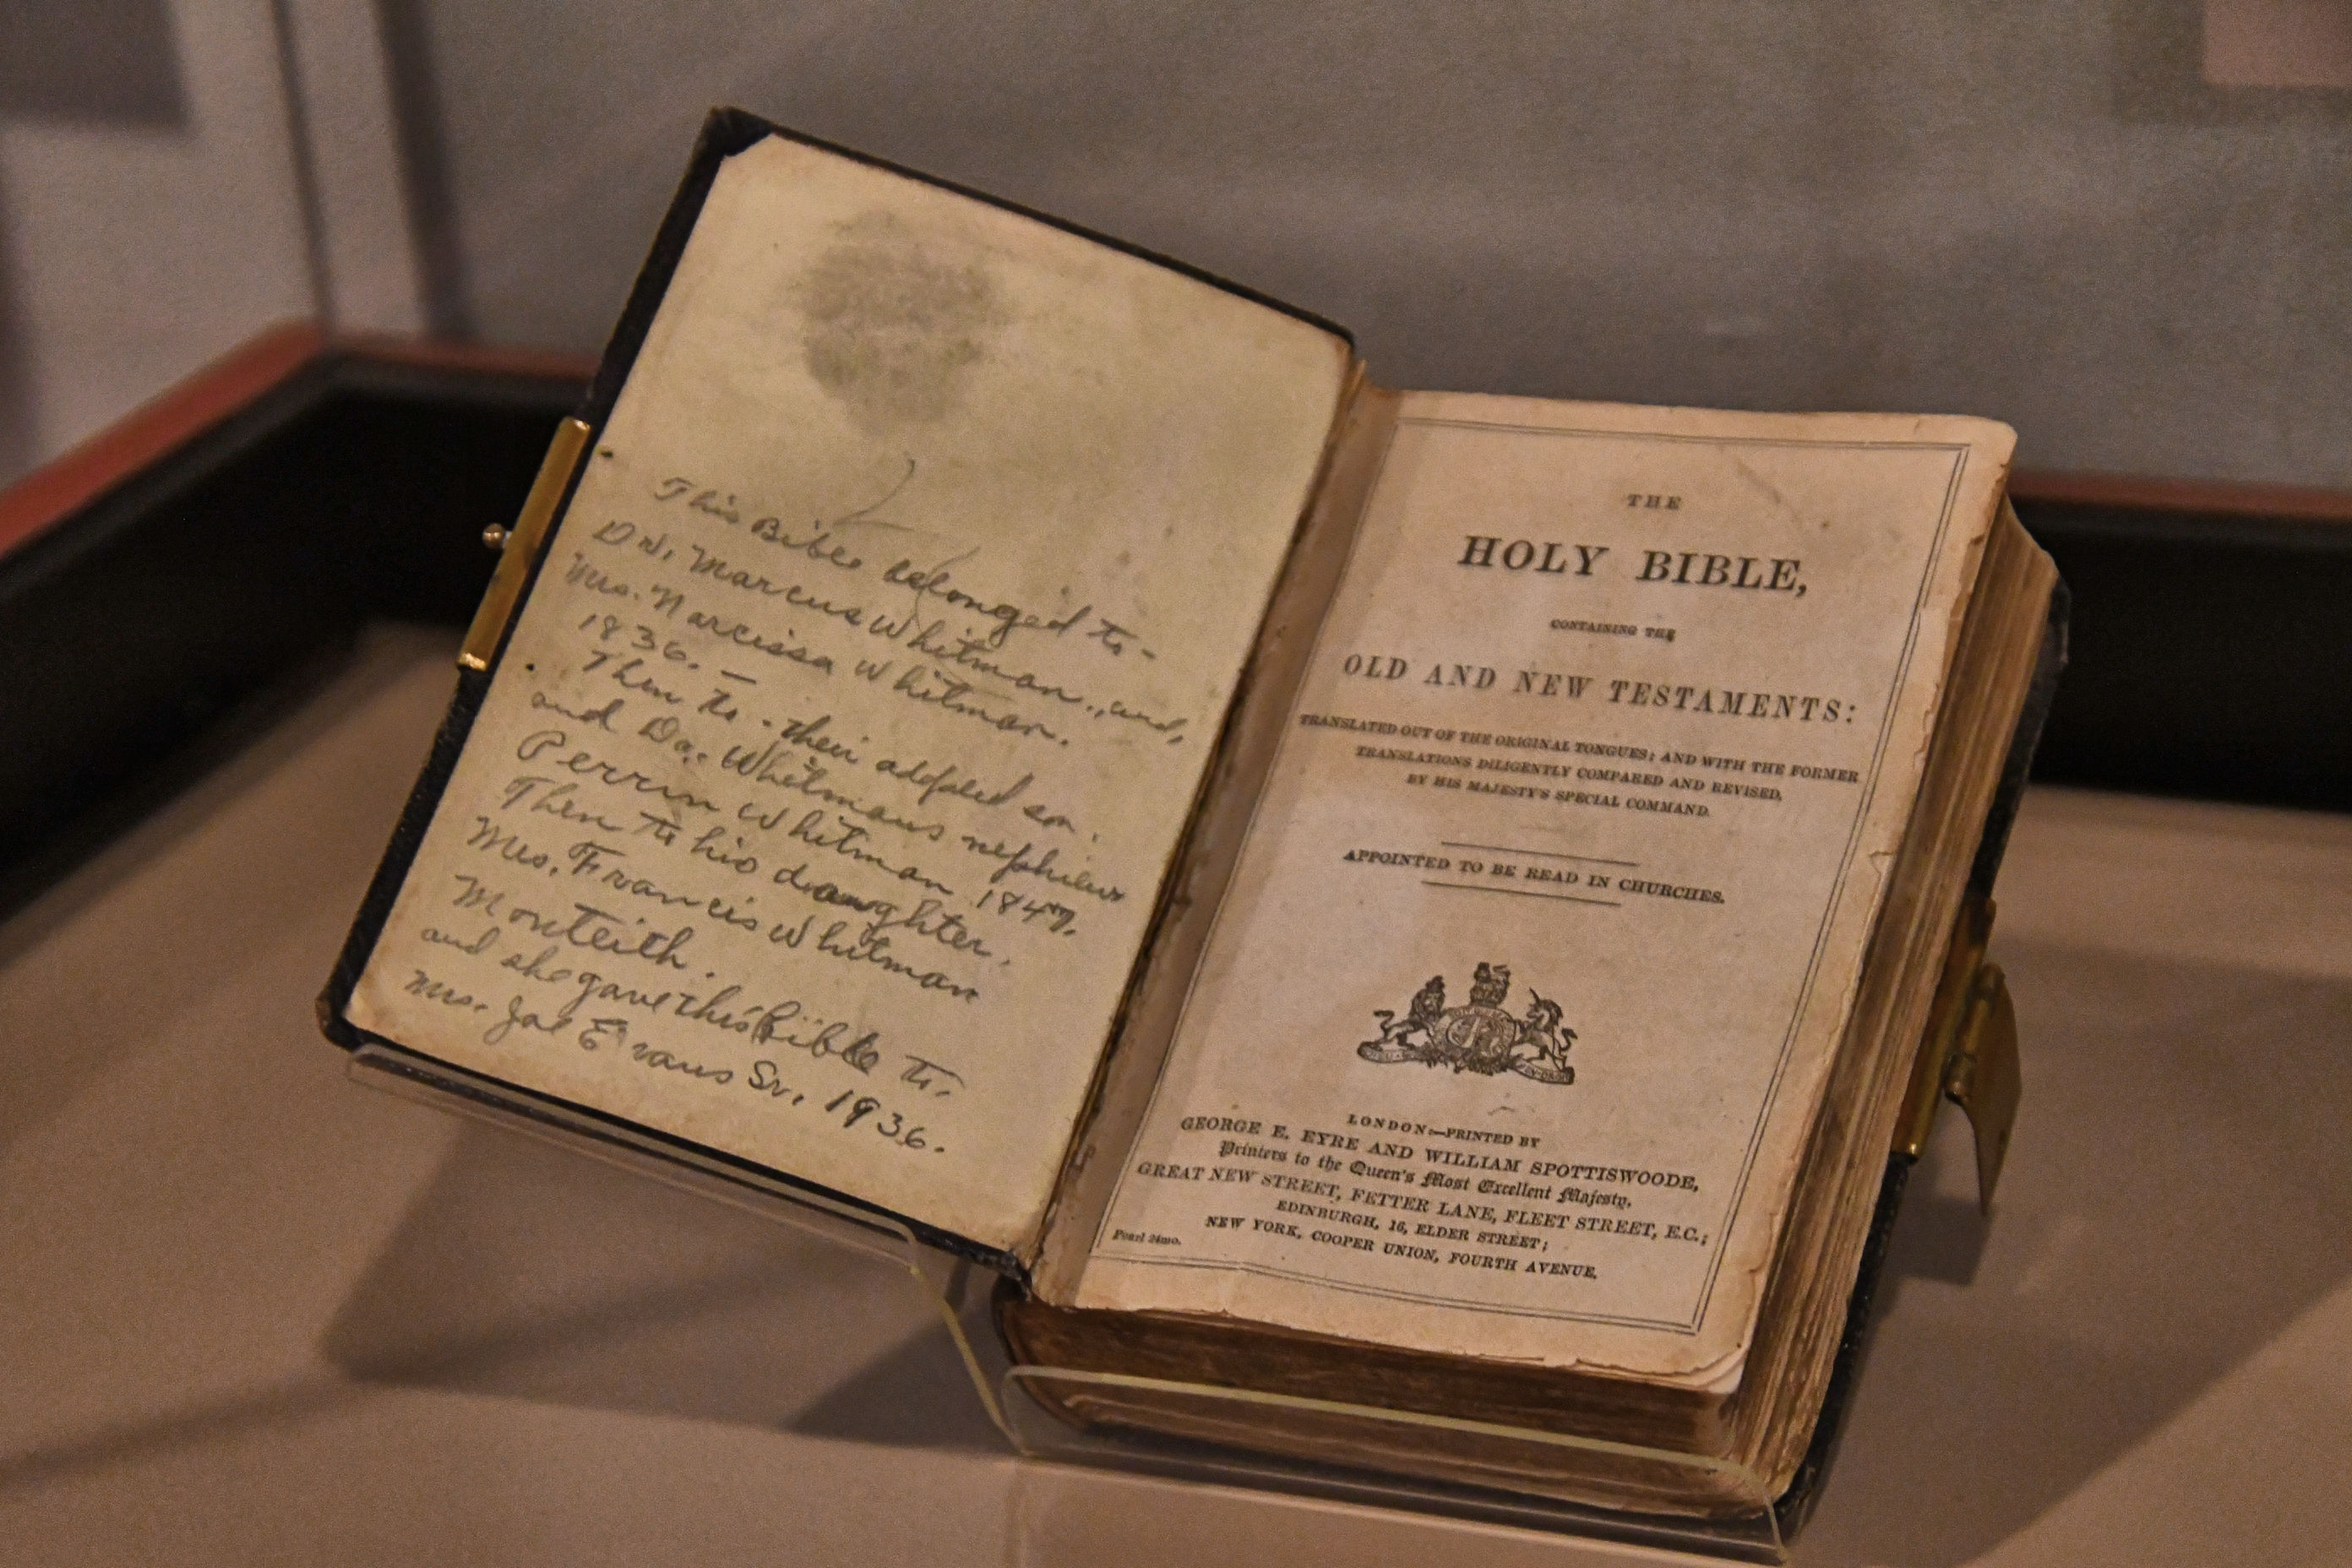 This Bible belonged to-
Dr. Marcus Whitman., and,
Mrs. Narcissa Whitman.
1836. —
Then to - their adopted son.
and Dr. Whitmans nephew
Perrin Whitman 1847.
Then to his daughter.
Mrs. Francis Whitman
Monteith.
and she gave this Bible to-
Mrs. Joe Evans Sr. 1936.
THE
HOLY BIBLE,
CONTAINING THE
OLD AND NEW TESTAMENTS:
TRANSLATED OUT OF THE ORIGINAL TONGUES; AND WITH THE FORMER
TRANSLATIONS DILIGENTLY COMPARED AND REVISED,
BY HIS MAJESTY'S SPECIAL COMMAND.
APPOINTED TO BE READ IN CHURCHES.
LONDON:—PRINTED BY
GEORGE E. EYRE AND WILLIAM SPOTTISWOODE,
Printers to the Queen's Most Excellent Majesty.
GREAT NEW STREET, FETTER LANE, FLEET STREET, E.C.;
EDINBURGH, 16, ELDER STREET;
NEW YORK, COOPER UNION, FOURTH AVENUE.
Pearl 24mo.